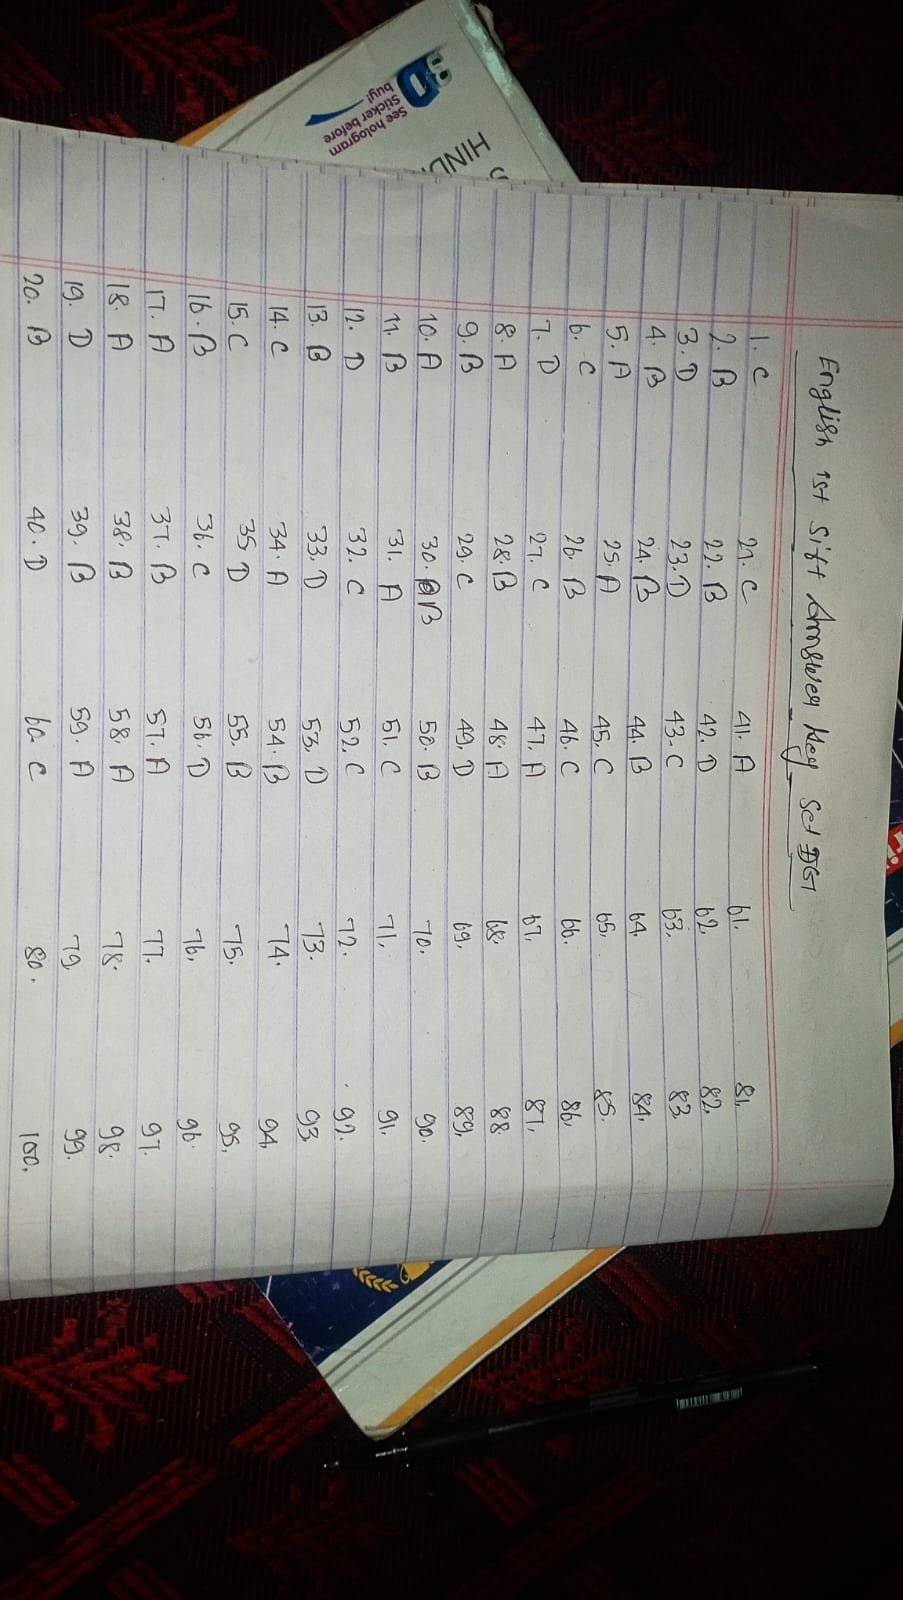 English 1st Sift Answer Key Set G
1. C 21. C 41. A 61. 81.
2. B 22. B 42. D 62. 82.
3. D 23. D 43. C 63. 83.
4. B 24. B 44. B 64. 84.
5. A 25. A 45. C 65. 85.
6. C 26. B 46. C 66. 86.
7. D 27. C 47. A 67. 87.
8. A 28. B 48. A 68. 88.
9. B 29. C 49. D 69. 89.
10. A 30. B 50. B 70. 90.
11. B 31. A 51. C 71. 91.
12. D 32. C 52. C 72. 92.
13. B 33. D 53. D 73. 93
14. C 34. A 54. B 74. 94.
15. C 35 D 55. B 75. 95.
16. B 36. C 56. D 76. 96.
17. A 37. B 57. A 77. 97.
18. A 38. B 58. A 78. 98.
19. D 39. B 59. A 79. 99.
20. B 40. D 60. C 80. 100.
See hologram
Sticker before
buy!